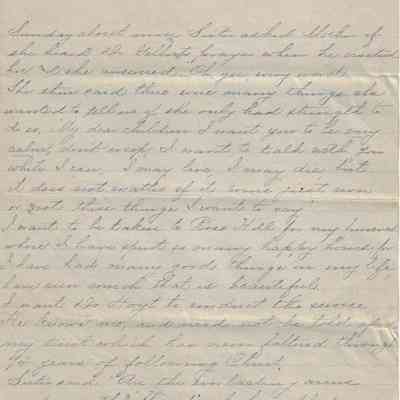 Sunday about nine Sister asked Mother if
she heard Dr. prayer when he
her & she answered, Oh yes, every word.
She then said there were many things she
wanted to tell us if she only had strength to
do so, My dear children I want you to be very
calm, don't weep, I want to talk with you
while I can, I may live, I may die, but
it does not matter if I come just now
or not these things I want to say
I want to be taken to Rose Hill for my funeral
where I have spent so many happy hours, for
I have had many good things in my life,
have seen much that is beautiful.
I want Dr Hoyt to conduct the service
He knows me, and need not be told of
my trust which has never faltered through
years of following Christ.
Sister said "Are the Everlasting arms